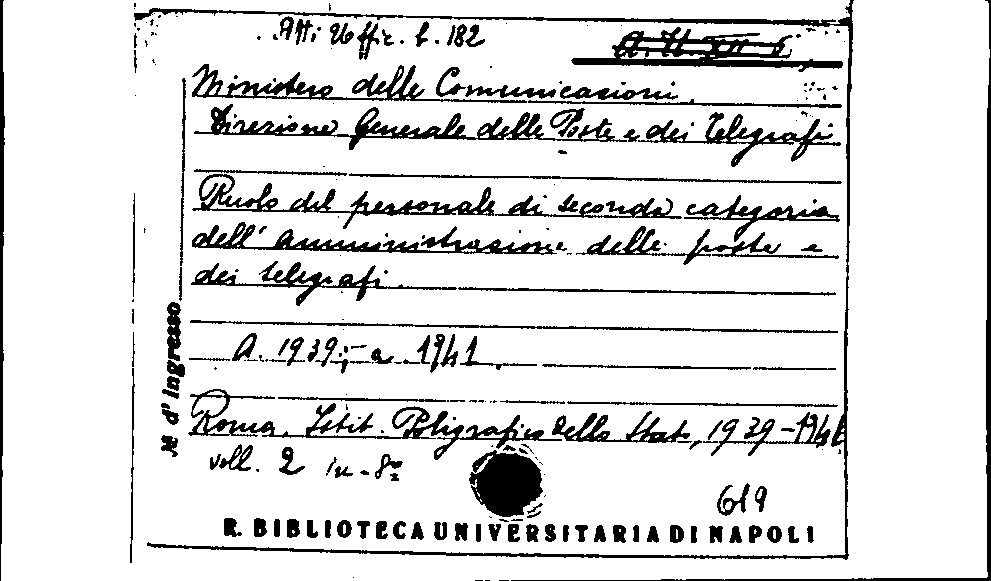 Atti Uffic. b. 182
A. U. XII 6
Ministero delle Comunicazioni.
Direzione Generale delle Poste e dei Telegrafi
Ruolo del personale di seconda categoria
dell'amministrazione delle poste e
dei telegrafi.
A. 1939; - a 1941.
Roma, Istit. Poligrafico dello Stato, 1939-1941
voll. 2 in-8º
619
R. BIBLIOTECA UNIVERSITARIA DI NAPOLI
№ d'Ingresso